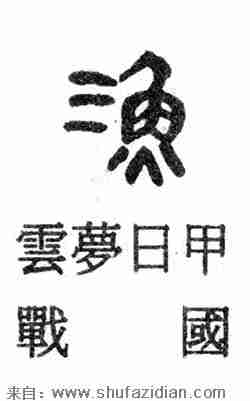 漁
雲夢日甲
戰國
来自：www.shufazidian.com